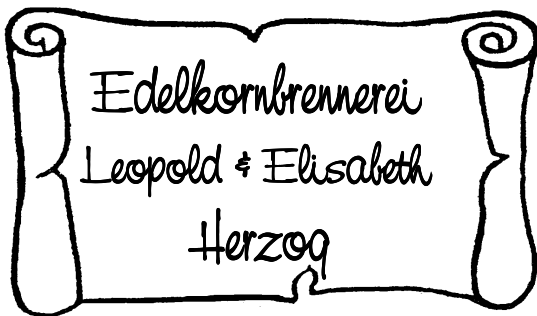 Edelkornbrennerei
Leopold & Elisabeth
Herzog